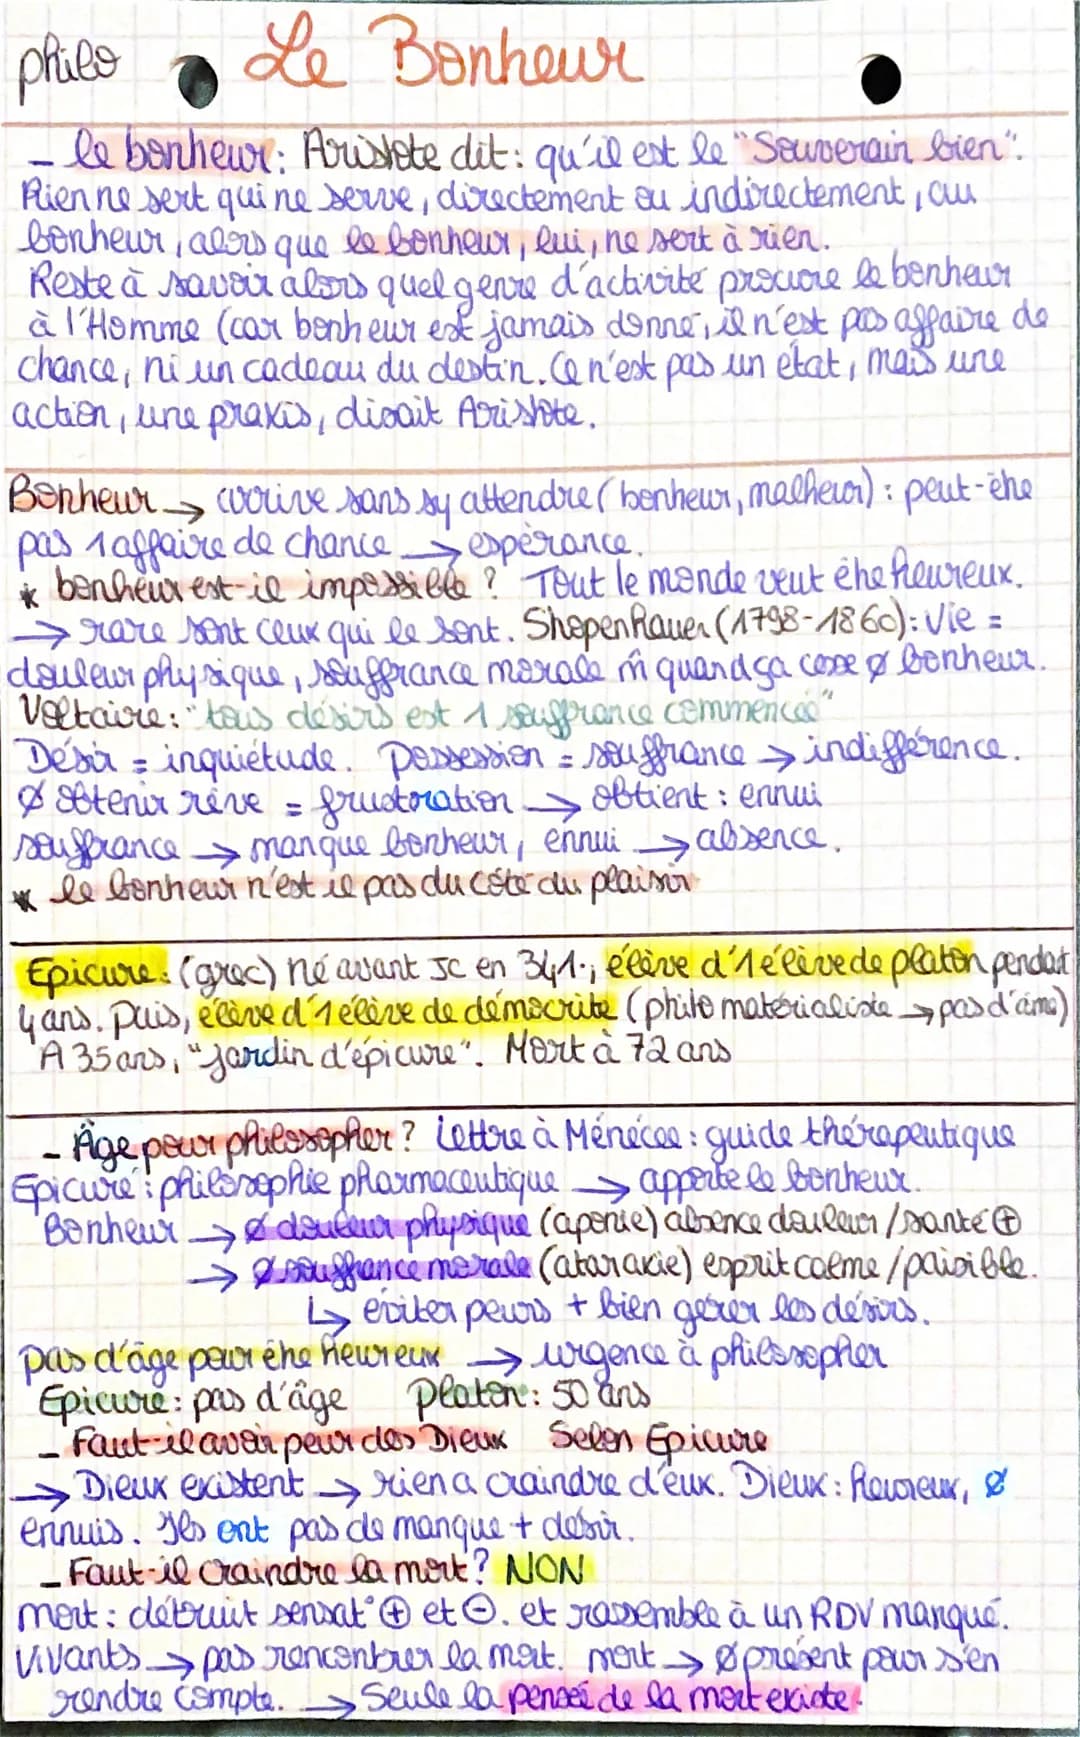 philo Le Bonheur
- le bonheur : Aristote dit : qu'il est le "Souverain bien".
Rien ne sert qui ne serve, directement ou indirectement, au
bonheur, alors que le bonheur, lui, ne sert à rien.
Reste à savoir alors quel genre d'activité procure le bonheur
à l'Homme (car bonheur est jamais donné, il n'est pas affaire de
chance, ni un cadeau du destin. Ce n'est pas un état, mais une
action, une praxis, disait Aristote.
Bonheur → arrive sans sy attendre (bonheur, malheur) : peut-être
pas 1 affaire de chance → espèrance.
* bonheur est-il impossible ? Tout le monde veut être heureux.
→ rare sont ceux qui le sont. Shopenhauer (1798-1860) : Vie =
douleur physique, souffrance morale m̂ quand ça cesse ø bonheur.
Voltaire : "tous désirs est 1 souffrance commencée"
Désir = inquiétude. Possession = souffrance → indifférence.
Ø obtenir rêve = frustration → obtient : ennui
souffrance → manque bonheur, ennui → absence.
* le bonheur n'est il pas du côté du plaisir
Epicure : (grec) né avant JC en 341., élève d'1 élève de platon pendant
4 ans. Puis, élève d'1 élève de démocrite (philo matérialiste → pas d'âme)
A 35 ans, "jardin d'épicure". Mort à 72 ans
- Âge pour philosopher ? Lettre à Ménécée : guide thérapeutique
Epicure : philosophie pharmaceutique → apporte le bonheur.
Bonheur → Ø douleur physique (aponie) absence douleur / santé ⊕
→ Ø souffrance morale (ataraxie) esprit calme / paisible.
↳ éviter peurs + bien gérer les désirs.
pas d'âge pour être heureux → urgence à philosopher
Epicure : pas d'âge Platon : 50 ans
- Faut-il avoir peur des Dieux Selon Epicure
→ Dieux existent → rien a craindre d'eux. Dieux : heureux, Ø
ennuis. Ils ont pas de manque + désir.
- Faut-il craindre la mort ? NON
mort : détruit sensat° ⊕ et ⊖. et rassemble à un RDV manqué.
Vivants → pas rencontrer la mort. mort → Ø présent pour s'en
rendre compte. → Seule la pensée de la mort existe.